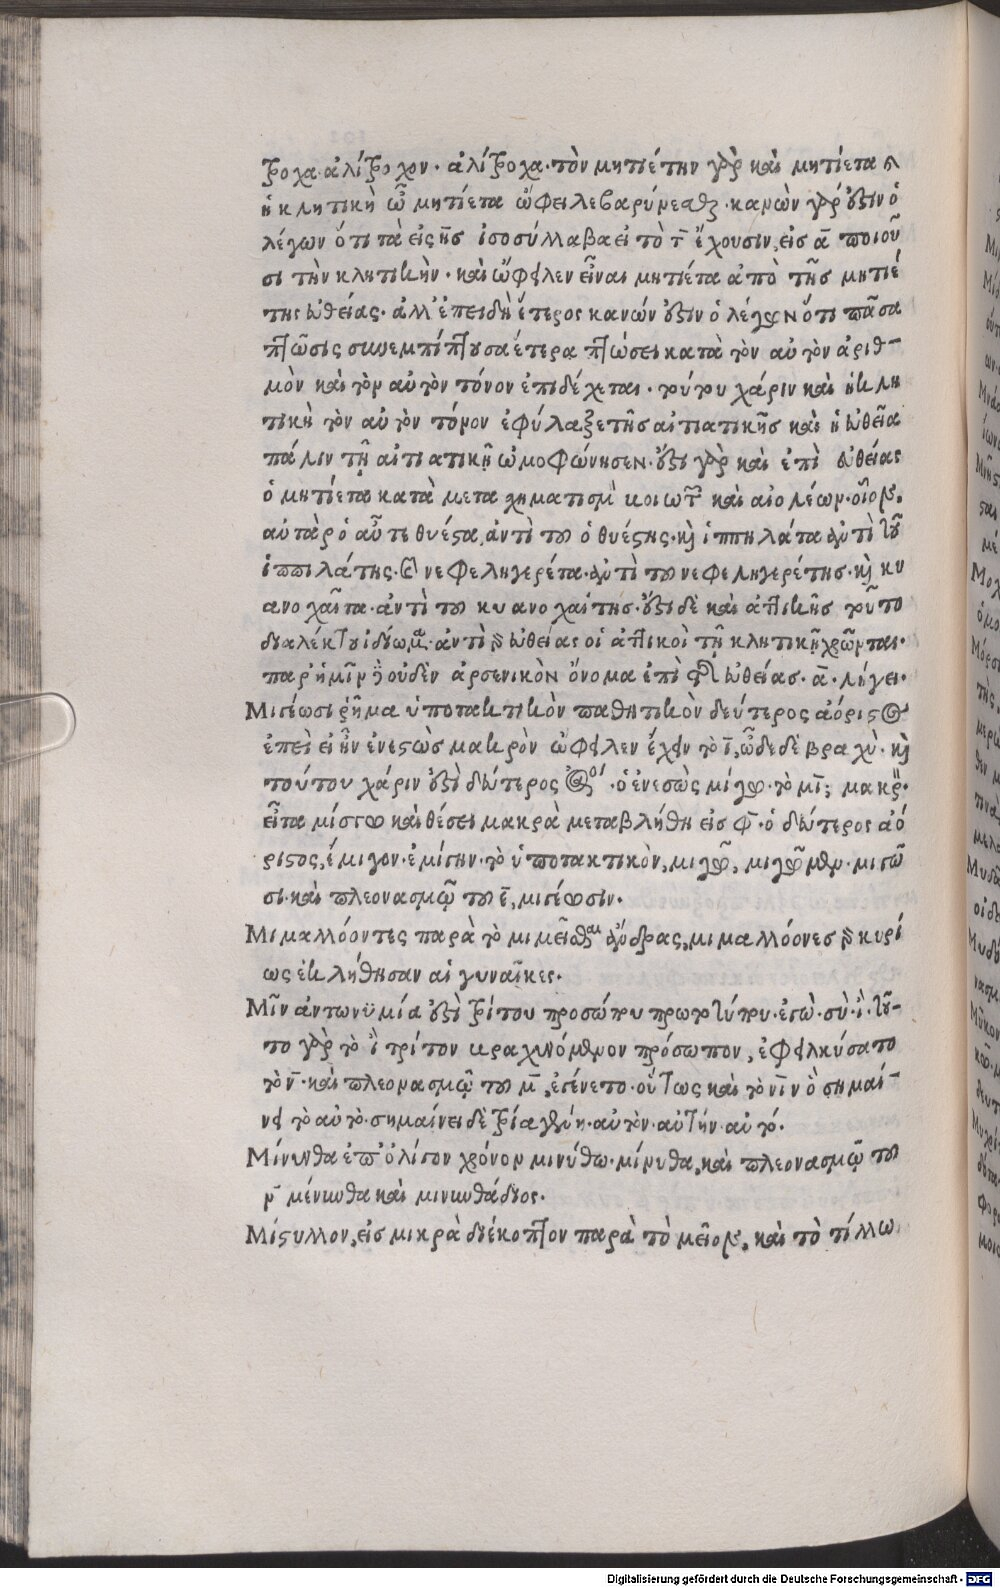 τροχα. ἁλίτροχον. ἁλίτροχα. τὸν μητιέτην γὰρ καὶ μητίετα
ἡ κλητικὴ ὦ μητίετα ὤφειλε βαρύνεσθαι. κανὼν γάρ ἐστιν ὁ
λέγων ὅτι τὰ εἰς ης ἰσοσύλλαβα εἰ τὸ τ̄ ἔχουσιν, εἰς ᾱ ποιοῦ
σι τὴν κλητικὴν. καὶ ὤφειλεν εἶναι μητιέτα ἀπὸ τῆς μητιέ
της εὐθείας. ἀλλ' ἐπειδὴ ἕτερος κανών ἐστιν ὁ λέγων ὅτι πᾶσα
πτῶσις συνεμπίπτουσα ἑτέρα πτώσει κατὰ τὸν αὐτὸν ἀριθ-
μὸν καὶ τὸν αὐτὸν τόνον ἐπιδέχεται. τούτου χάριν καὶ ἡ κλη
τικὴ τὸν αὐτὸν τόνον ἐφύλαξε τῆς αἰτιατικῆς καὶ ἡ εὐθεῖα
πάλιν τῇ αἰτιατικῇ ὡμοφώνησεν. ἔστι γὰρ καὶ ἐπὶ εὐθείας
ὁ μητίετα κατὰ μεταχηματισμὸν βοιωτῶν καὶ αἰολέων. οἷον,
αὐτὰρ ὁ αὖτε θυέστα, ἀντὶ τοῦ ὁ θυέστης. καὶ ἱππηλάτα ἀντὶ τοῦ
ἱππιλάτης. καὶ νεφεληγερέτα. ἀντὶ τοῦ νεφεληγερέτης. καὶ κυ
ανοχαῖτα. ἀντὶ τοῦ κυανοχαίτης. ἔστι δὲ καὶ ἀττικῆς τοῦτο
διαλέκτου ἰδίωμα. ἀντὶ τῆς εὐθείας οἱ ἀττικοὶ τῇ κλητικῇ χρῶνται.
παρ' ἡμῖν γὰρ οὐδὲν ἀρσενικὸν ὄνομα ἐπὶ τῆς εὐθείας. ᾱ. λήγει.
Μιγέωσι ῥῆμα ὑποτακτικὸν παθητικὸν δεύτερος ἀόριστος
ἐπεὶ εἰ ἦν ἐνεστὼς μακρὸν ὤφειλεν ἔχειν τὸ ῑ, ὧδε δὲ βραχὺ. καὶ
τούτου χάριν ἐστὶ δεύτερος ἀόριστος. ὁ ἐνεστὼς μίγω. τὸ μῑ; μακρόν.
εἶτα μίσγω καὶ θέσει μακρὰ μεταβλήθη εἰς ὁ δεύτερος ἀό
ριστος, ἔμιγον. ἐμίγην. τὸ ὑποτακτικὸν, μιγῶ, μιγῶμεν. μιγῶ
σι. καὶ πλεονασμῷ τοῦ ε̄, μιγέωσιν.
Μιμαλλόοντες παρὰ τὸ μιμεῖσθαι ἄνδρας, μιμαλλόονες κυρί
ως ἐκλήθησαν αἱ γυναῖκες.
Μῖν ἀντωνυμία ἐστὶ τρίτου προσώπου πρωτοτύπου. ἐγὼ. σὺ. ἲ. τοῦ-
το γὰρ τὸ ἲ τρίτον βραχυνόμενον πρόσωπον, ἐφειλκύσατο
τὸ ν̄. καὶ πλεονασμῷ τοῦ μ̄, ἐγένετο. οὕτως καὶ τὸ νὶν ὃ σημαί-
νει τὸ αὐτὸ. σημαίνει δὲ τρία γένη. αὐτὸν. αὐτήν. αὐτό.
Μίνυνθα ἐπ' ὀλίγον χρόνον μινύθω. μίνυθα, καὶ πλεονασμῷ τοῦ
ν̄ μένυνθα καὶ μινυνθάδιος.
Μίστυλλον, εἰς μικρὰ διέκοπτον παρὰ τὸ μεῖον, καὶ τὸ τίλλω
Digitalisierung gefördert durch die Deutsche Forschungsgemeinschaft - DFG